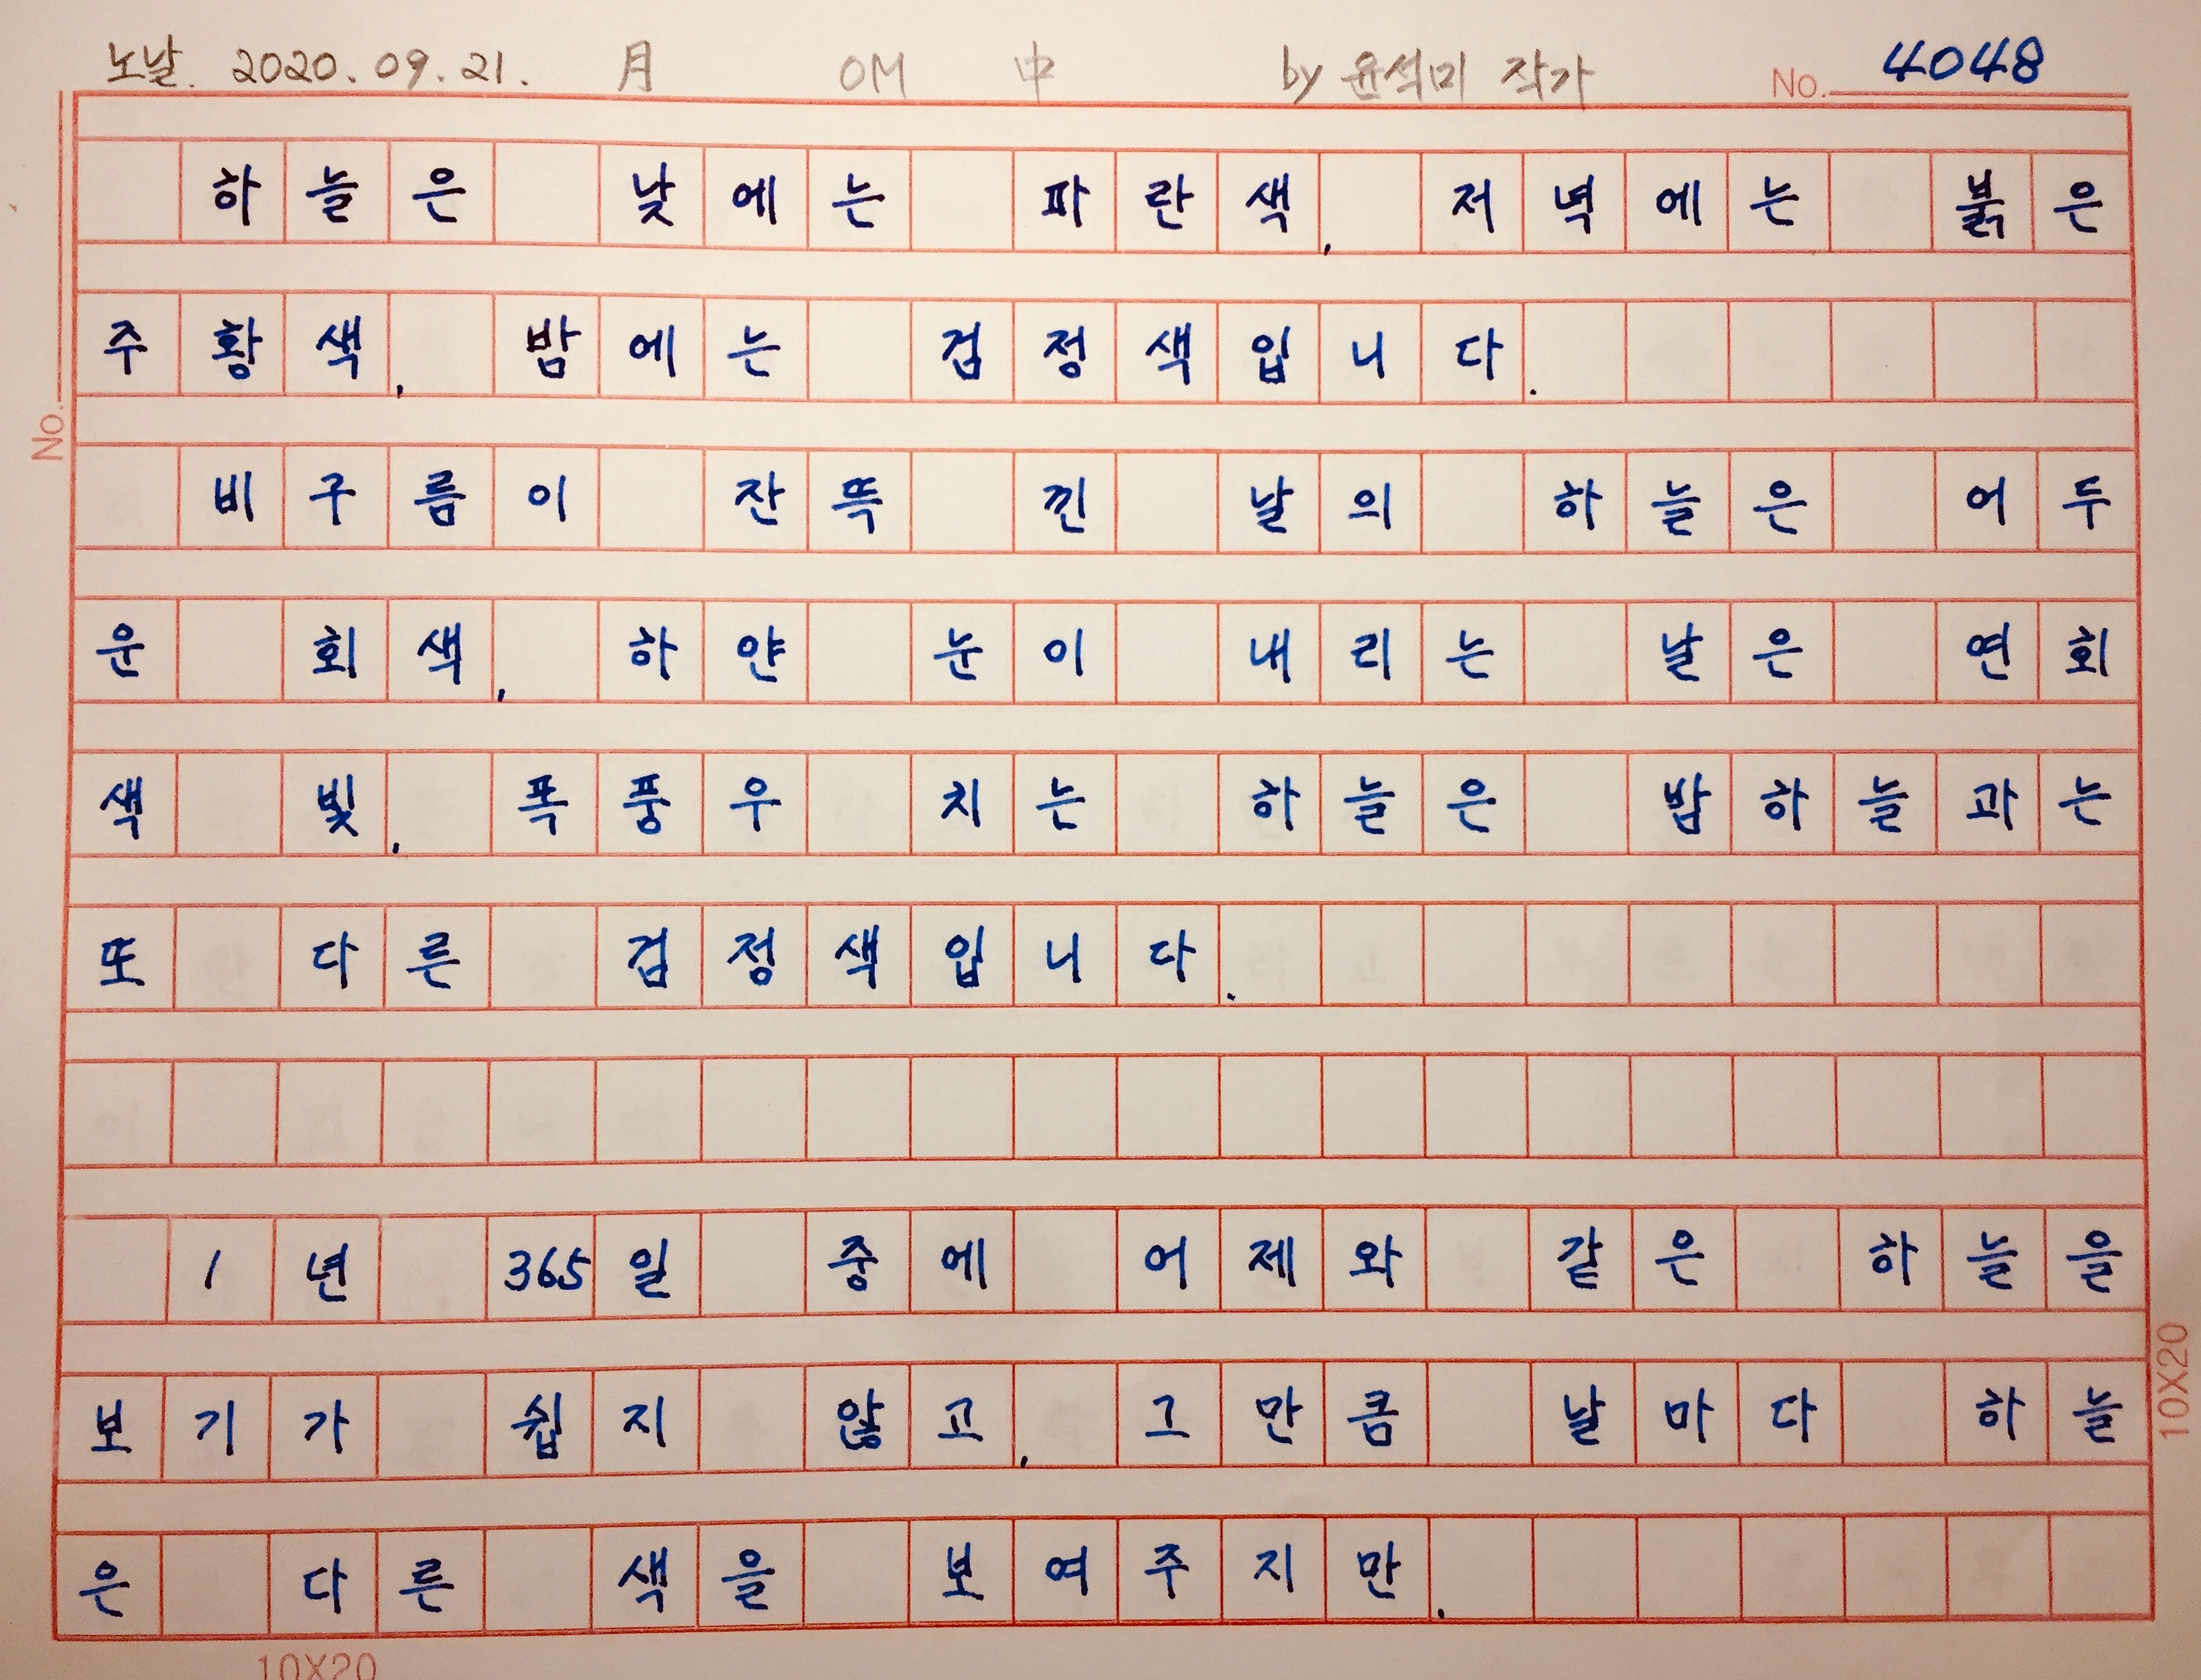 노날. 2020.09.21. 月 OM 中 by 윤석미 작가 No. 4048
하늘은 낮에는 파란색, 저녁에는 붉은
주황색, 밤에는 검정색입니다.
No.
비구름이 잔뜩 낀 날의 하늘은 어두
운 회색, 하얀 눈이 내리는 날은 연회
색 빛, 폭풍우 치는 하늘은 밤하늘과는
또 다른 검정색입니다.
1년 365일 중에 어제와 같은 하늘을
보기가 쉽지 않고, 그만큼 날마다 하늘
10X20
은 다른 색을 보여주지만,
10X20